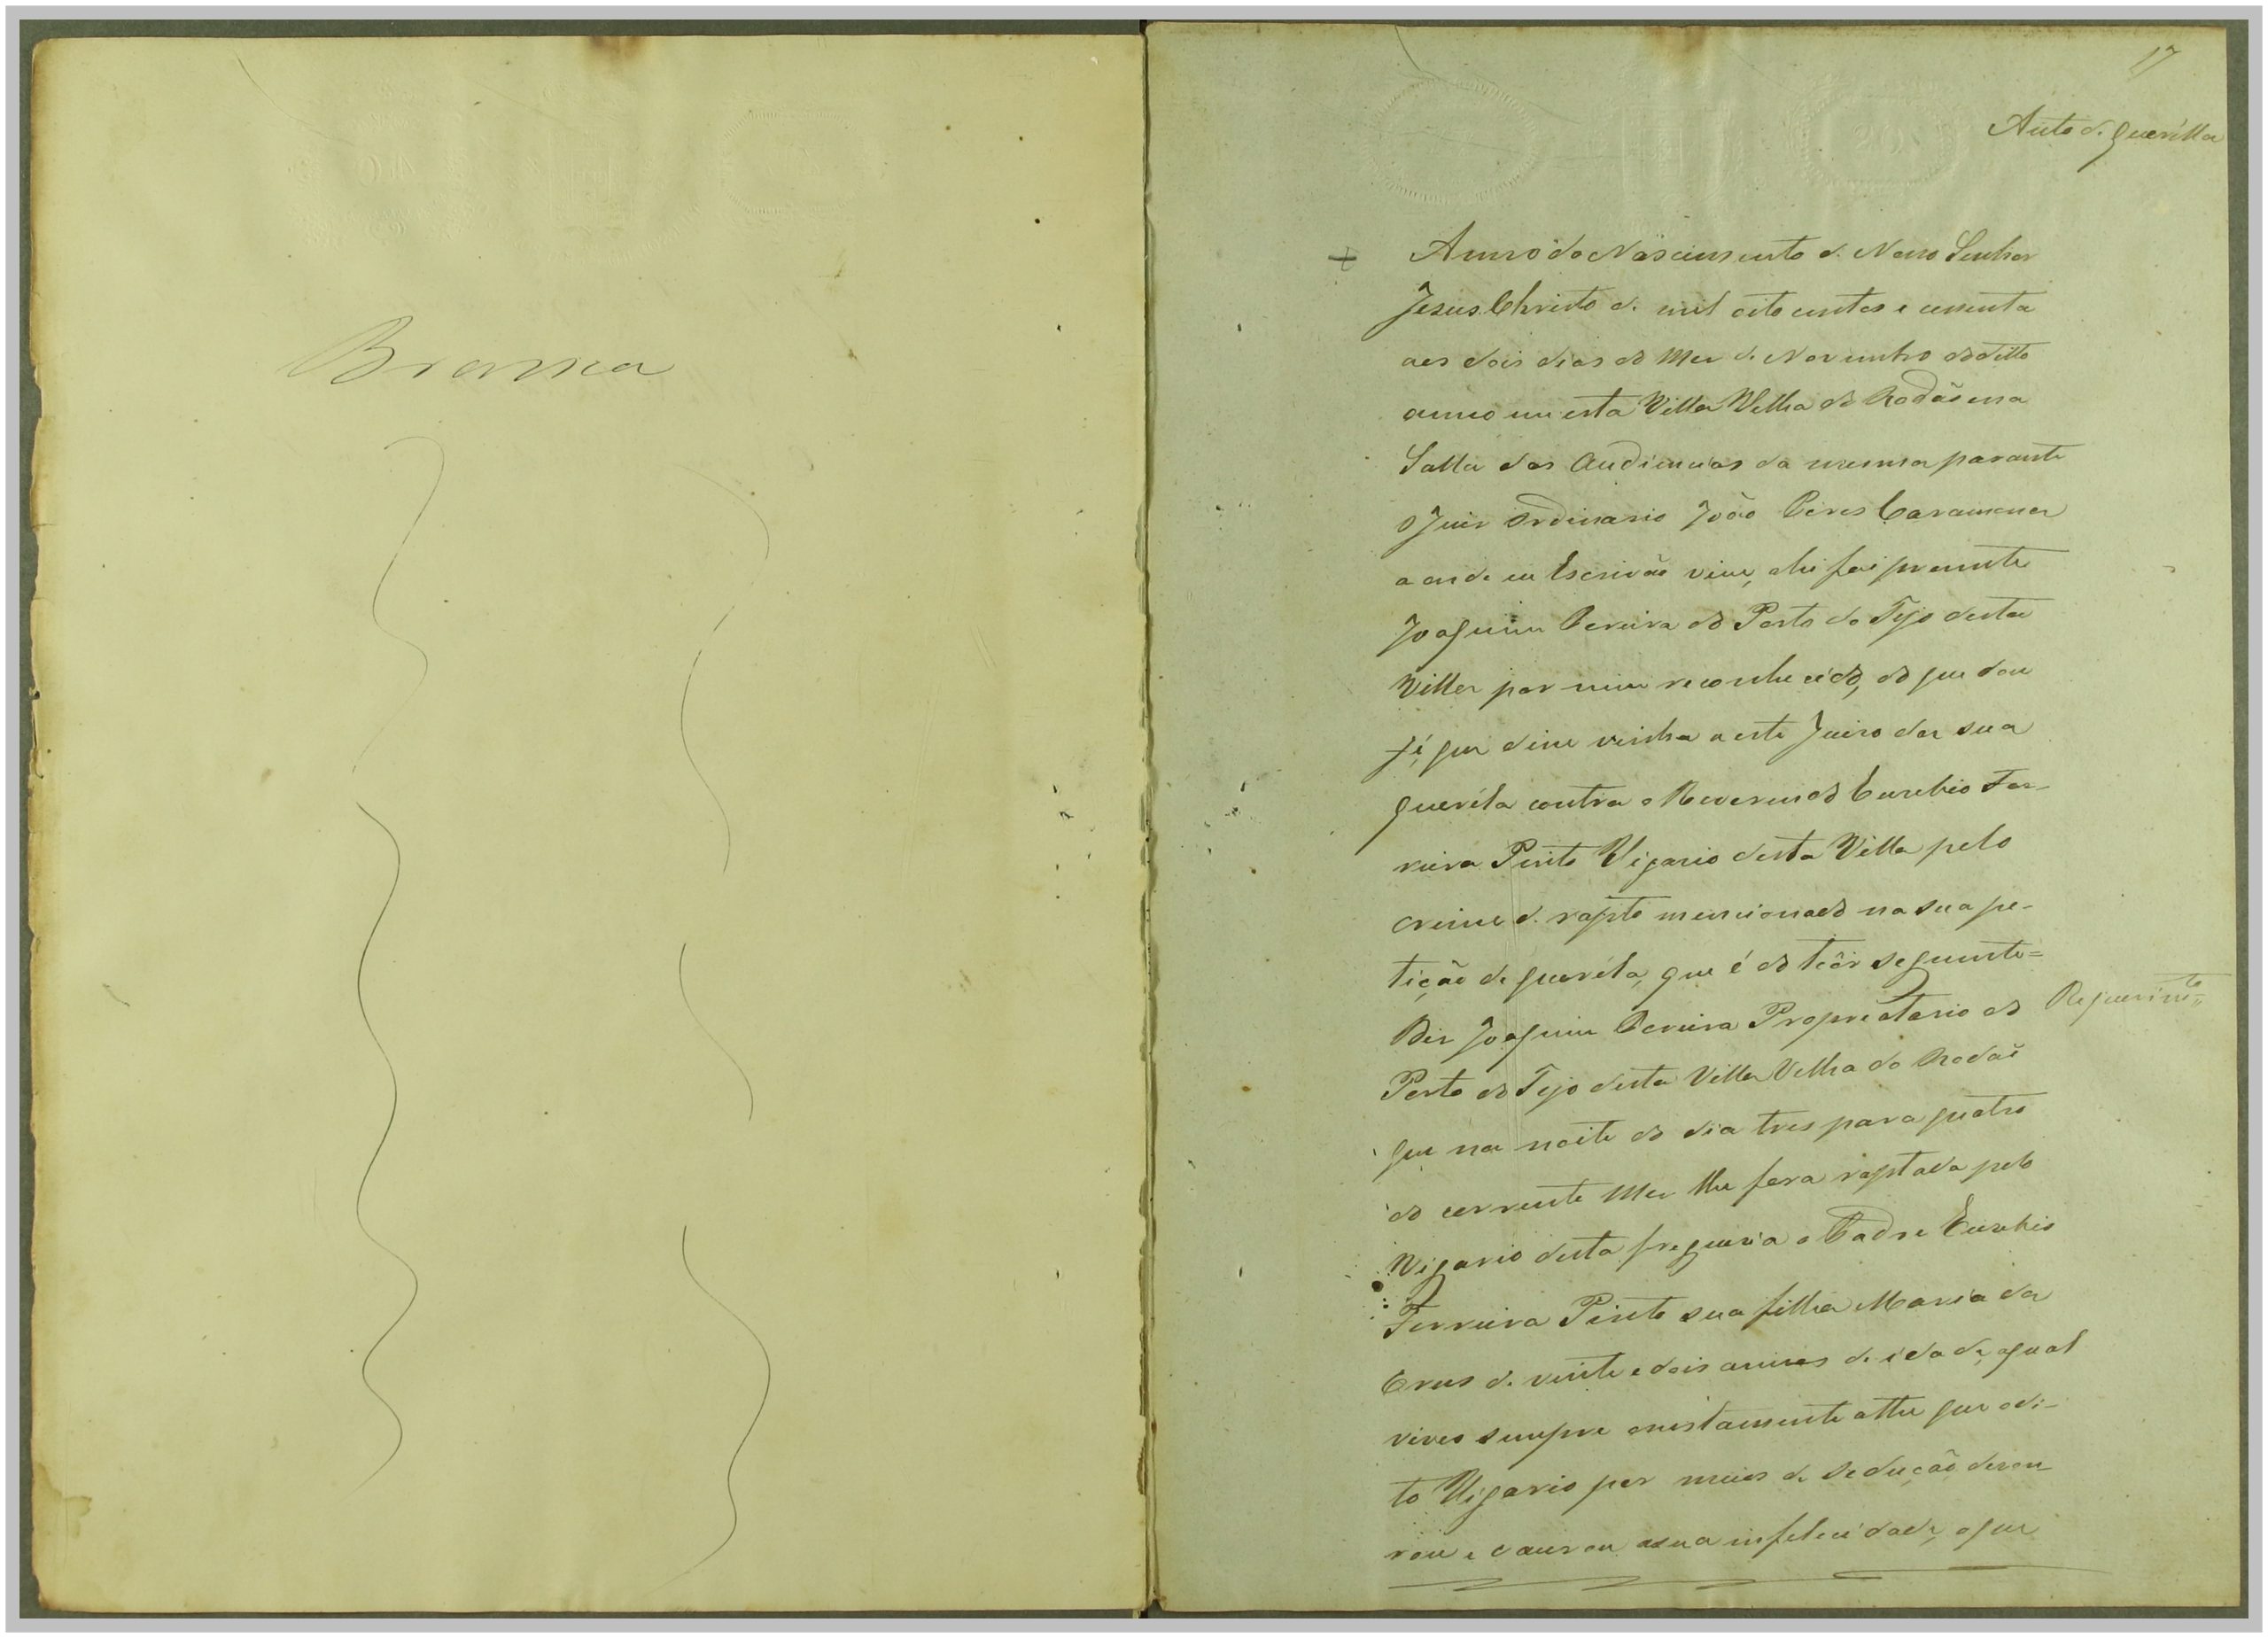 Branca
17
Auto de querélla
Anno do Nascimento de Nosso Senhor
Jesus Christo de mil oito centos e cessenta
aos dois dias do Mez de Novembro do ditto
anno em esta Villa Velha do Rodão e na
Salla das Audiencias da mesma parante
o Juiz Ordinario João Pires Caramona
a onde eu Escrivão vim, ahi foi prezente
Joaquim Pereira do Porto do Tejo desta
Villa por mim reconhecido, do que dou
fé, que disse vinha a este Juizo dar sua
queréla contra o Reverendo Euzebio Fer-
reira Pinto Vigario desta Villa pelo
crime de rapto mencionado na sua pe-
tição de queréla, que é do teôr seguinte=
Requerim.to
Diz Joaquim Pereira Proprietario do
Porto do Tejo desta Villa Velha do Rodão
que na noite do dia tres para quatro
do corrente Mez lhe fora raptada pelo
Vigario desta freguezia o Padre Euzebio
Ferreira Pinto sua filha Maria da
Crus de vinte e dois annos de idade, a qual
viveo sempre onistamente athe que o di-
to Vigario por meios de sedução deson-
rou e causou a sua infelecidade, o que